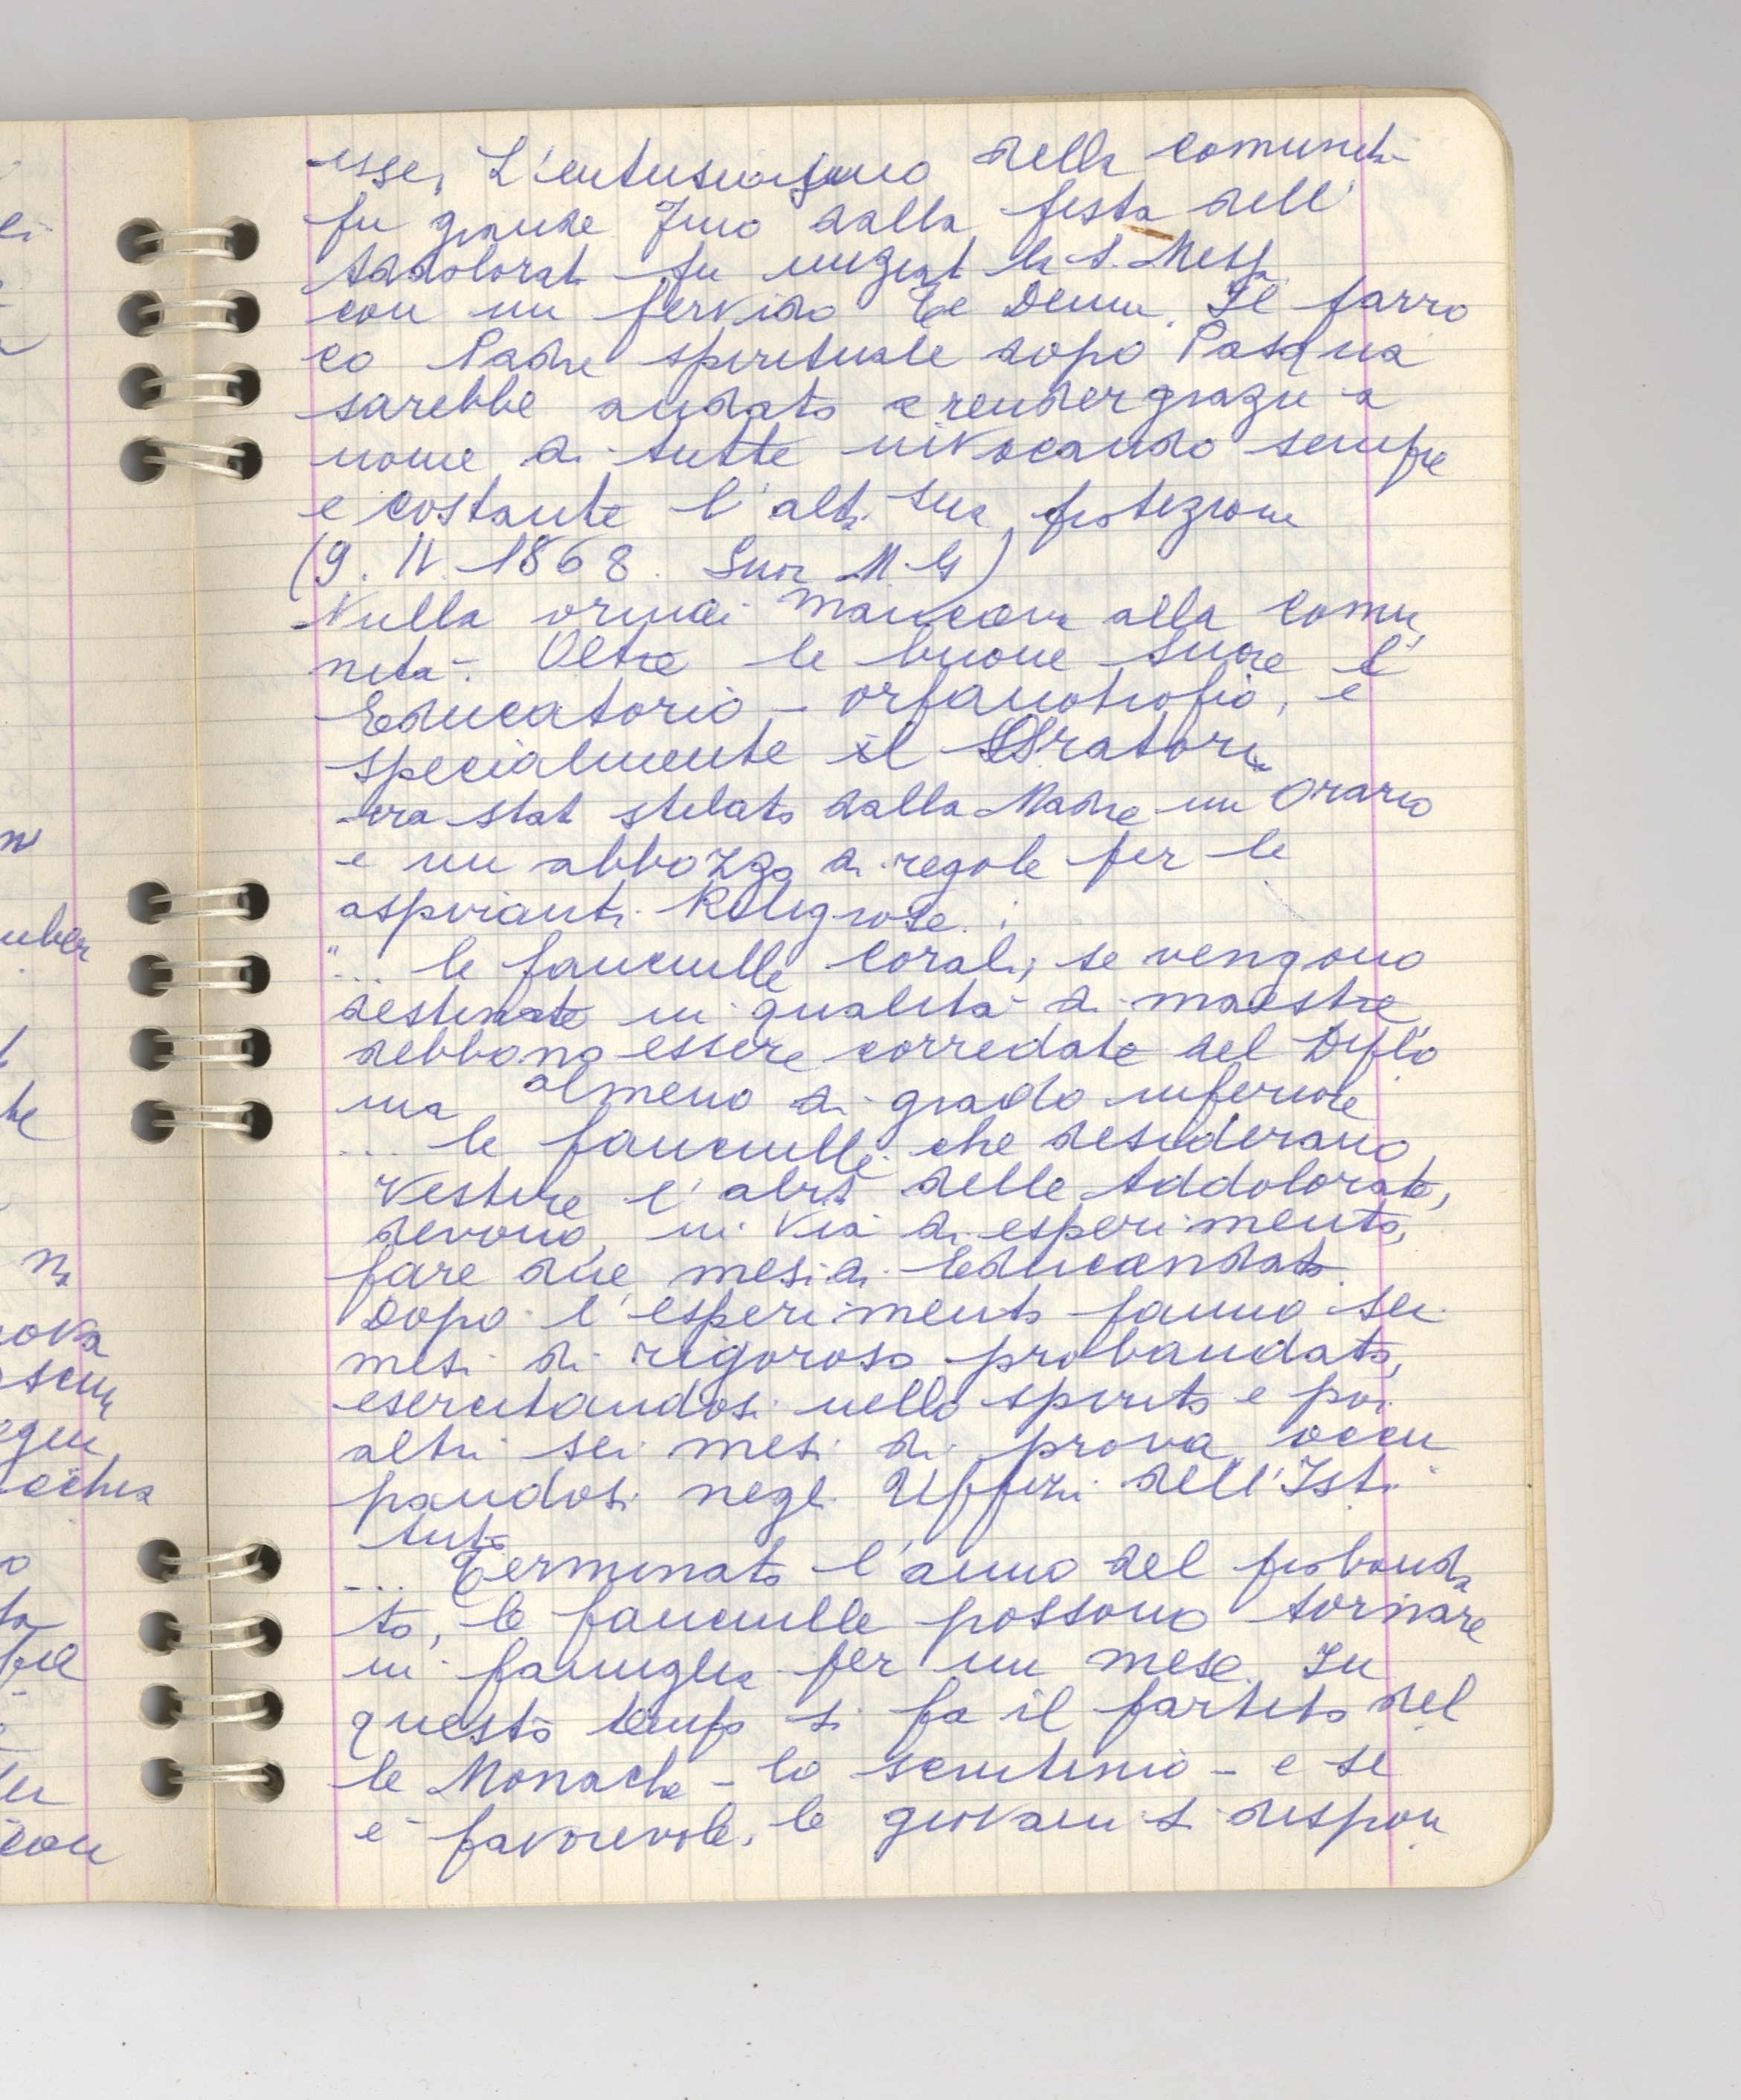 esse, L'entusiasmo della comunità
fu grande fino dalla festa dell'
Addolorata fu iniziat la S. Messa
con un fervido Te Deum. Il parro
co Padre spirituale dopo Pasqua
sarebbe andato a render grazie a
nome di tutte invocando sempre
e costante l'alta sua protezione
(9. IV. 1868. Suor M. G)
Nulla ormai mancava alla comu
nità. Oltre le buone suore l'
Educatorio - orfanotrofio, e
specialmente il
era stat stilato dalla Madre un Orario
e un abbozzo di regole per le
aspiranti Religiose :
"... le fanciulle corali, se vengono
destinate in qualità di maestre
debbono essere corredate del Diplo
ma almeno di grado inferiore
... le fanciulle che desiderano
vestire l'abito delle Addolorate,
devono, in via di esperimento,
fare due mesi di Educandato.
Dopo l'esperimento fanno sei
mesi di rigoroso probandato,
esercitandosi nello spirito e poi
altri sei mesi di prova occu
pandosi negli Uffizi dell'Isti
tuto
... Terminato l'anno del probanda
to, le fanciulle possono tornare
in famiglia per un mese. In
questo tempo si fa il partito del
le Monache - lo scrutinio - e se
è favorevole, le giovani si dispon